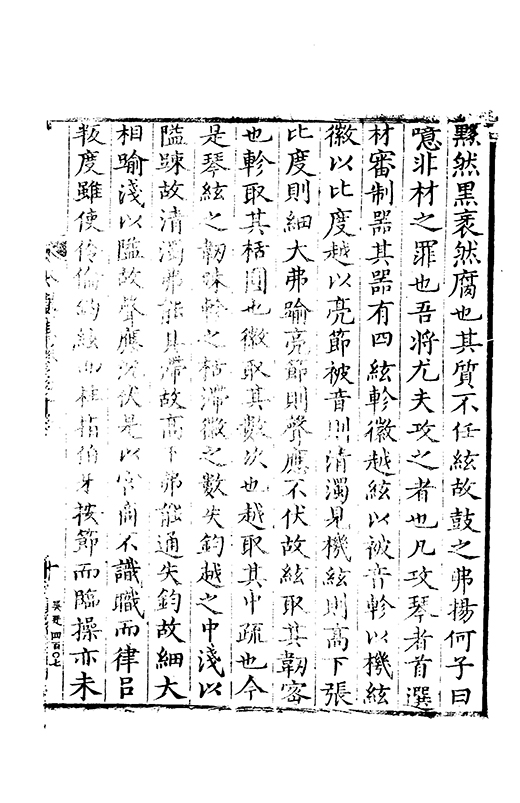 黟然黒衺然腐也其質不任絃故鼓之弗揚何子曰
噫非材之罪也吾將尤夫攻之者也凡攻琴者首選
材審制器其器有四絃軫徽越絃以被音軫以機絃
徽以比度越以亮節被音則清濁見機絃則高下張
比度則細大弗踰亮節則聲應不伏故絃取其韌宻
也軫取其栝圓也徽取其數次也越取其中疏也今
是琴絃之韌踈軫之枯滯徽之數失鈞越之中淺以
隘踈故清濁弗能具滯故高下弗能通失鈞故細大
相踰淺以隘故聲應沉伏是以宮商不識職而律吕
叛度雖使伶倫鈞絃而柱指伯牙按節而臨操亦未